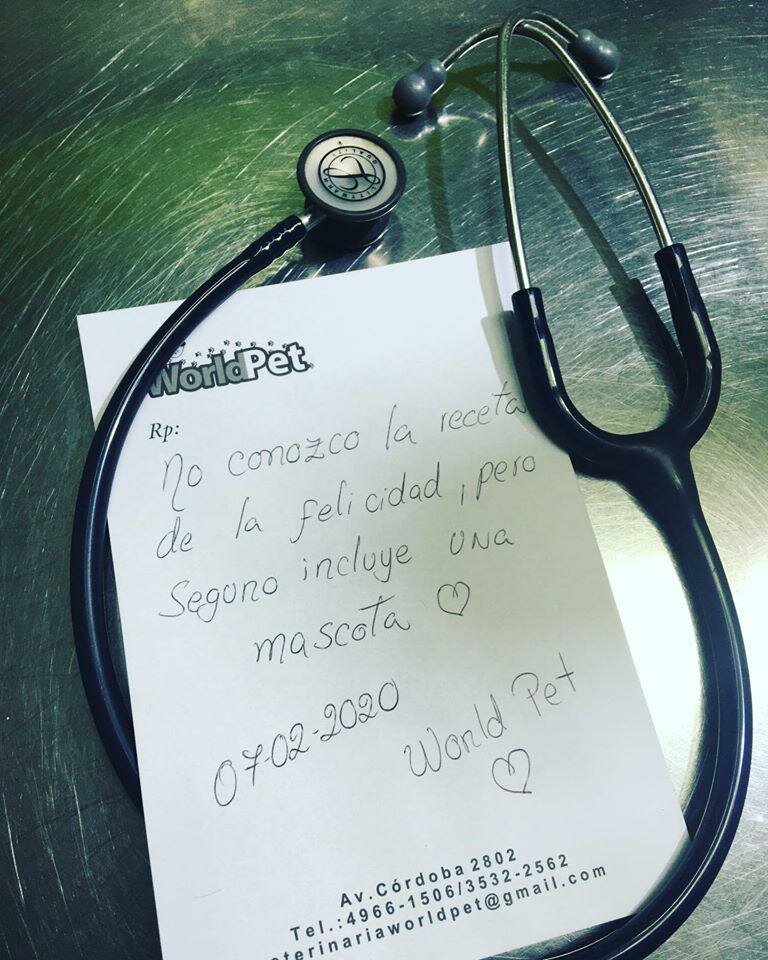 LITTMANN
QUALITY
WorldPet
Rp:
No conozco la receta
de la felicidad, pero
Seguro incluye una
mascota ♡
07-02-2020
World Pet
♡
Av.Córdoba 2802
Tel.:4966-1506/3532-2562
eterinariaworldpet@gmail.com